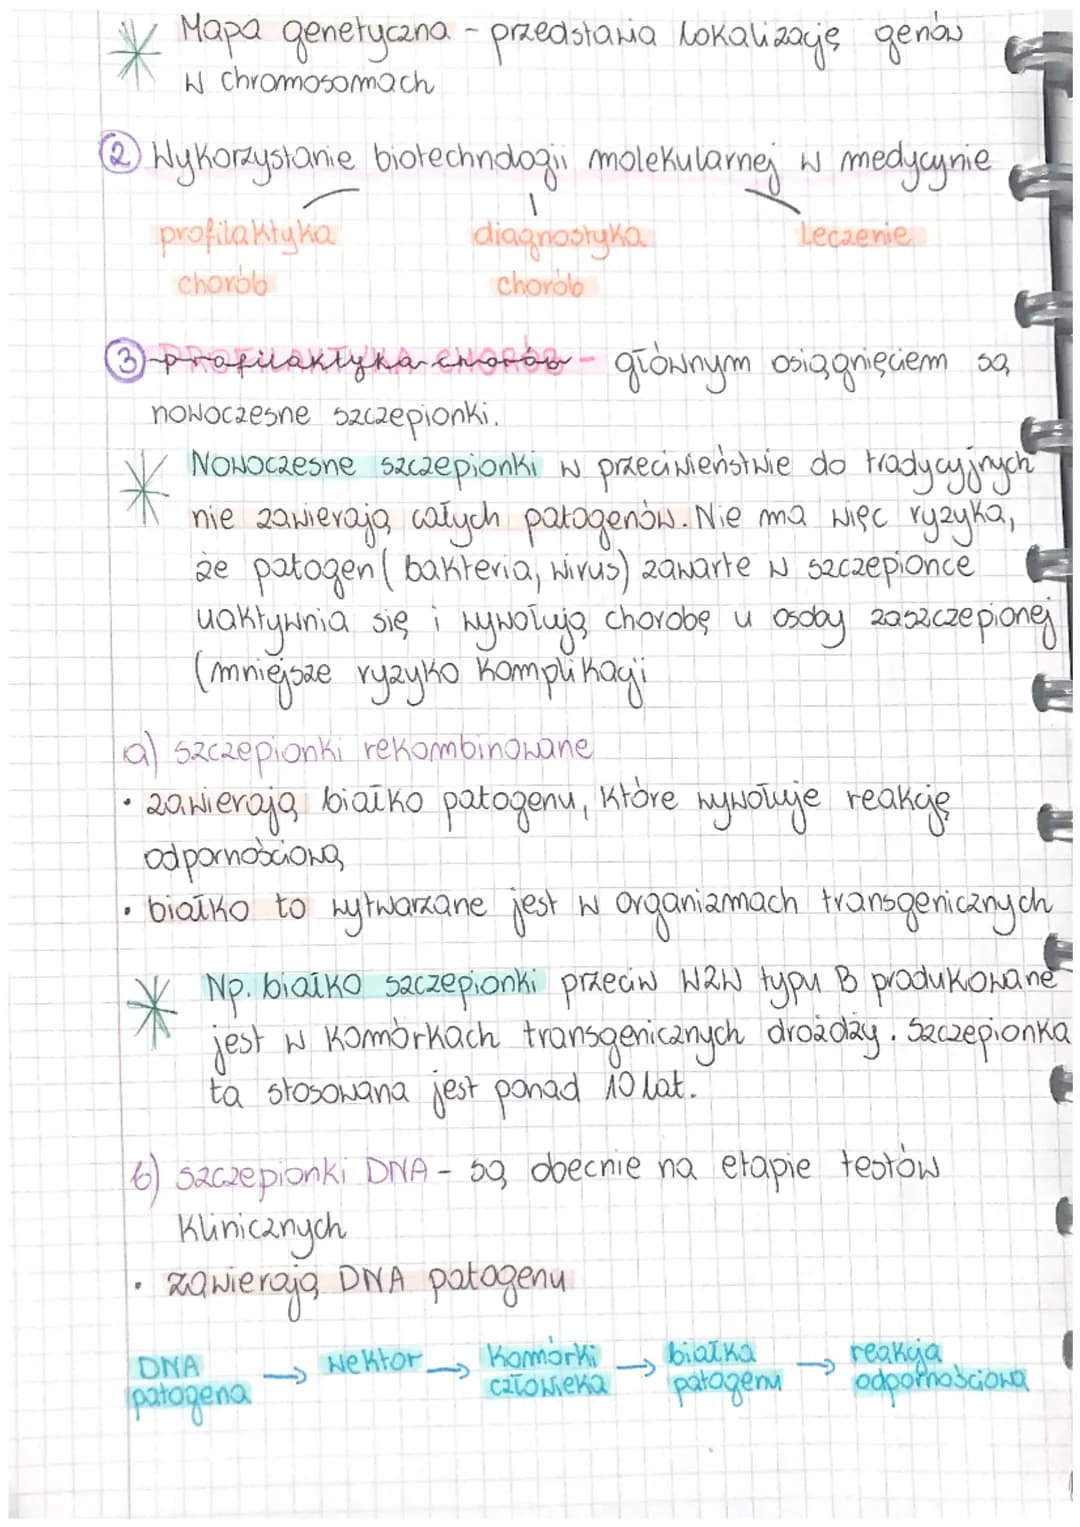 Mapa genetyczna - przedstawia lokalizację genów
w chromosomach
② Wykorzystanie biotechnologii molekularnej w medycynie
profilaktyka diagnostyka leczenie
chorób chorób
③ profilaktyka chorób - głównym osiągnięciem są
nowoczesne szczepionki.
Nowoczesne szczepionki w przeciwieństwie do tradycyjnych
nie zawierają całych patogenów. Nie ma więc ryzyka,
że patogen (bakteria, wirus) zawarte w szczepionce
uaktywnia się i wywołują chorobę u osoby zaszczepionej
(mniejsze ryzyko komplikacji
a) szczepionki rekombinowane
• zawierają białko patogenu, które wywołuje reakcję
odpornościową
• białko to wytwarzane jest w organizmach transgenicznych
Np. białko szczepionki przeciw WZW typu B produkowane
jest w komórkach transgenicznych drożdży. Szczepionka
ta stosowana jest ponad 10 lat.
b) szczepionki DNA - są obecnie na etapie testów
klinicznych
• zawierają DNA patogenu
DNA → wektor → komórki → białka → reakcja
patogena człowieka patogenu odpornościowa